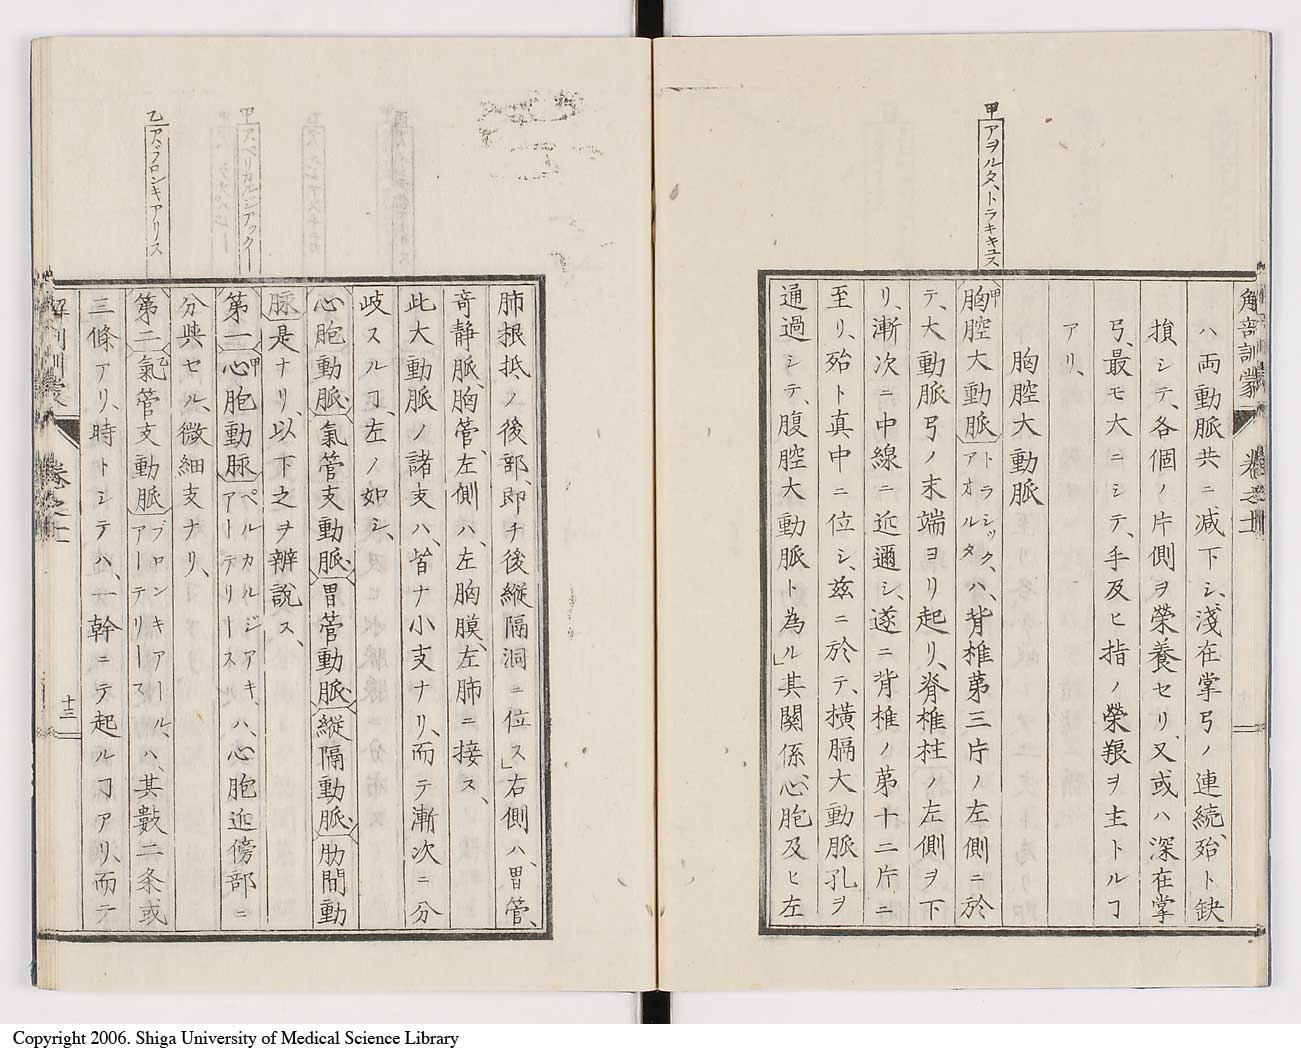 甲アヲルタ、トラキキユス
解剖訓蒙
卷之十一
ハ両動脈共ニ减下シ、淺在掌弓ノ連続、殆ト缺
損シテ、各個ノ片側ヲ榮養セリ、又或ハ深在掌
弓、最モ大ニシテ、手及ヒ指ノ榮粮ヲ主トルヿ
アリ、
胸腔大動脈
甲胸腔大動脈トラシック、アオルタハ、背椎第三片ノ左側ニ於
テ、大動脈弓ノ末端ヨリ起リ、脊椎柱ノ左側ヲ下
リ、漸次ニ中線ニ近邇シ、遂ニ背椎ノ第十二片ニ
至リ、殆ト真中ニ位シ、茲ニ於テ、横膈大動脈孔ヲ
通過シテ、腹腔大動脈ト為ル」其關係、心胞及ヒ左
乙ア、ブロンキアリス
甲ア、ペリカルジアック—
肺根抵ノ後部、即チ後縦隔洞ニ位ス」右側ハ、胃管、
奇静脈、胸管、左側ハ、左胸膜、左肺ニ接ス、
此大動脈ノ諸支ハ、皆ナ小支ナリ、而テ漸次ニ分
岐スルヿ、左ノ如シ、
心胞動脈、氣管支動脈、胃管動脈、縦隔動脈、肋間動
脉是ナリ、以下之ヲ辨説ス、
第一甲心胞動脉ペルカルジアキ、アーテリースハ、心胞近傍部ニ
分奘セル、微細支ナリ、
第二乙氣管支動脈ブロンキアール、アーテリースハ、其數二条或
三條アリ、時トシテハ、一幹ニテ起ルヿアリ、而テ
解剖訓蒙
卷之十一
十三
Copyright 2006. Shiga University of Medical Science Library